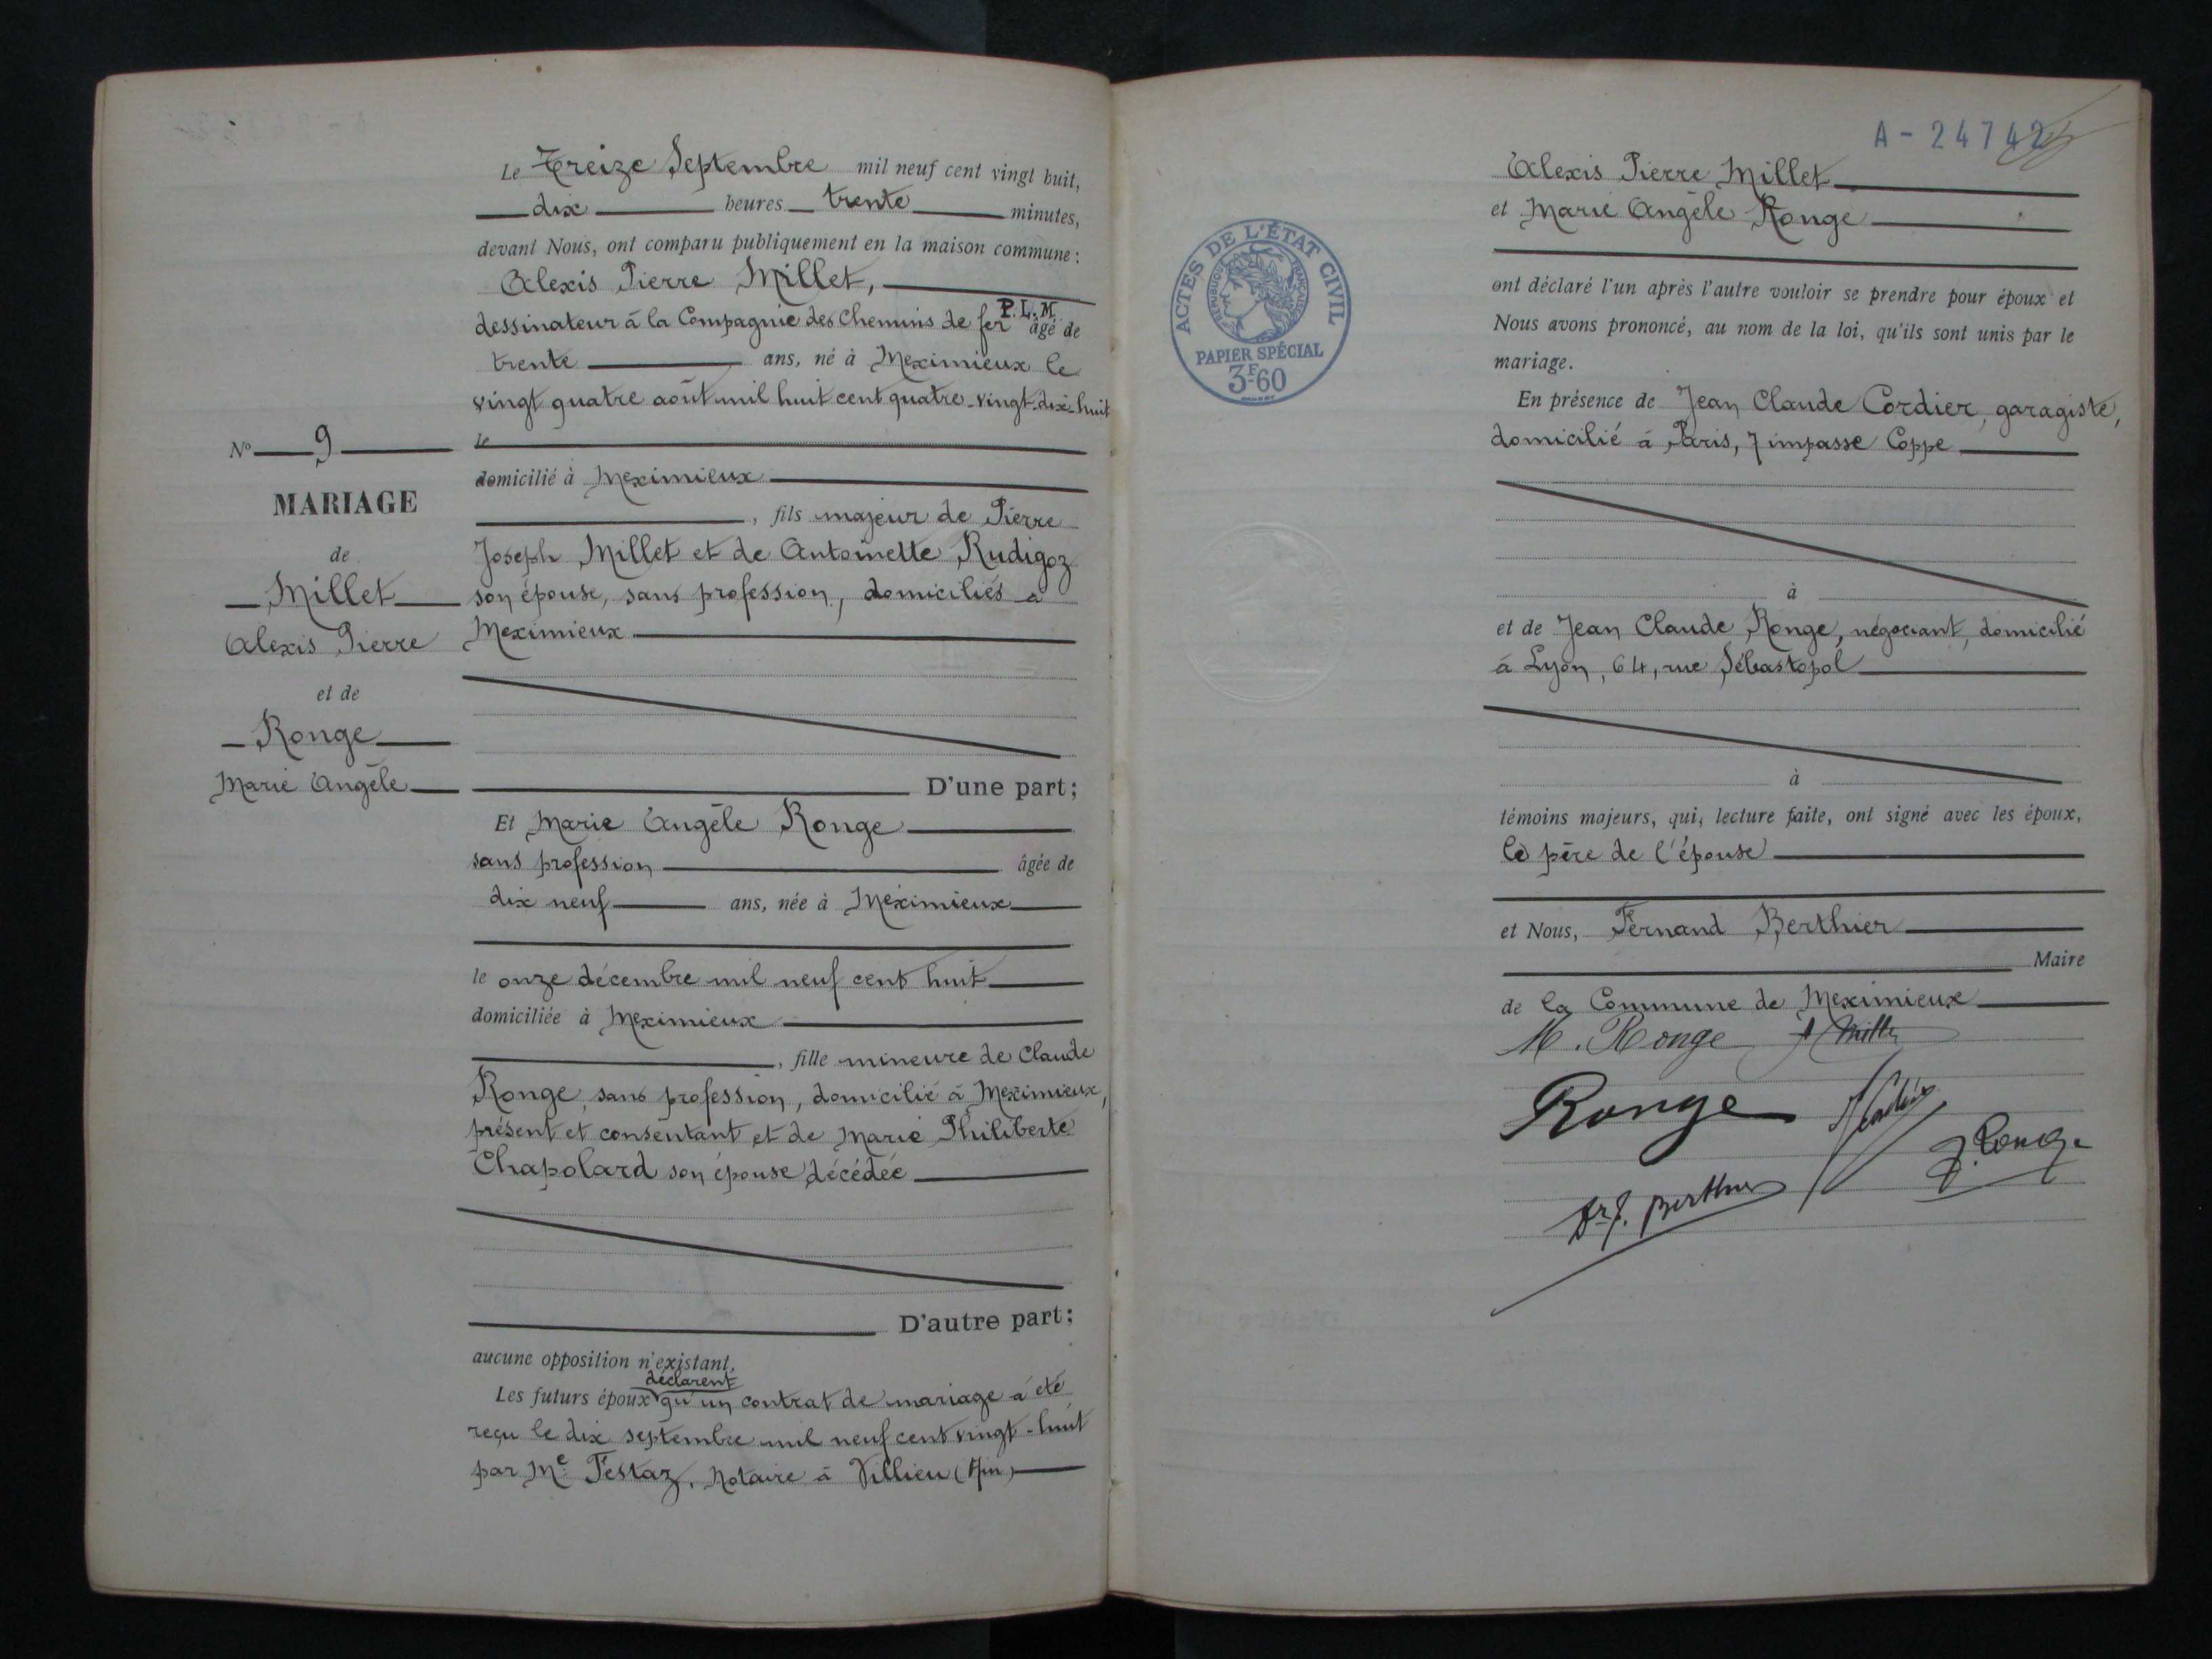 Le Treize Septembre mil neuf cent vingt huit,
dix heures trente minutes,
devant Nous, ont comparu publiquement en la maison commune :
Alexis Pierre Millet,
P.L.M
dessinateur à la Compagnie des Chemins de fer âgé de
trente ans, né à Meximieux le
vingt quatre août mil huit cent quatre-vingt-dix-huit
le
domicilié à Meximieux
, fils majeur de Pierre
Joseph Millet et de Antoinette Rudigoz
son épouse, sans profession, domiciliés à
Meximieux
D'une part;
N° 9
MARIAGE
de
Millet
Alexis Pierre
et de
Ronge
Marie Angèle
Et Marie Angèle Ronge
sans profession âgée de
dix neuf ans, née à Meximieux
le onze décembre mil neuf cent huit
domiciliée à Meximieux
, fille mineure de Claude
Ronge, sans profession, domicilié à Meximieux,
présent et consentant et de Marie Philiberte
Chapolard son épouse décédée
D'autre part;
aucune opposition n'existant.
déclarent
Les futurs époux qu'un contrat de mariage a été
reçu le dix septembre mil neuf cent vingt-huit
par Me Festaz, Notaire à Villieu (Ain)
A - 24742
ACTES DE L'ÉTAT CIVIL
RÉPUBLIQUE FRANÇAISE
PAPIER SPÉCIAL
3F60
Alexis Pierre Millet
et Marie Angèle Ronge
ont déclaré l'un après l'autre vouloir se prendre pour époux et
Nous avons prononcé, au nom de la loi, qu'ils sont unis par le
mariage.
En présence de Jean Claude Cordier, garagiste,
domicilié à Paris, 7 impasse Coppe
à
et de Jean Claude Ronge, négociant, domicilié
à Lyon, 64, rue Sébastopol
à
témoins majeurs, qui, lecture faite, ont signé avec les époux,
le père de l'épouse
et Nous, Fernand Berthier
Maire
de la Commune de Meximieux
M. Ronge
Ronge
J. Ronge
Dr F. Berthier